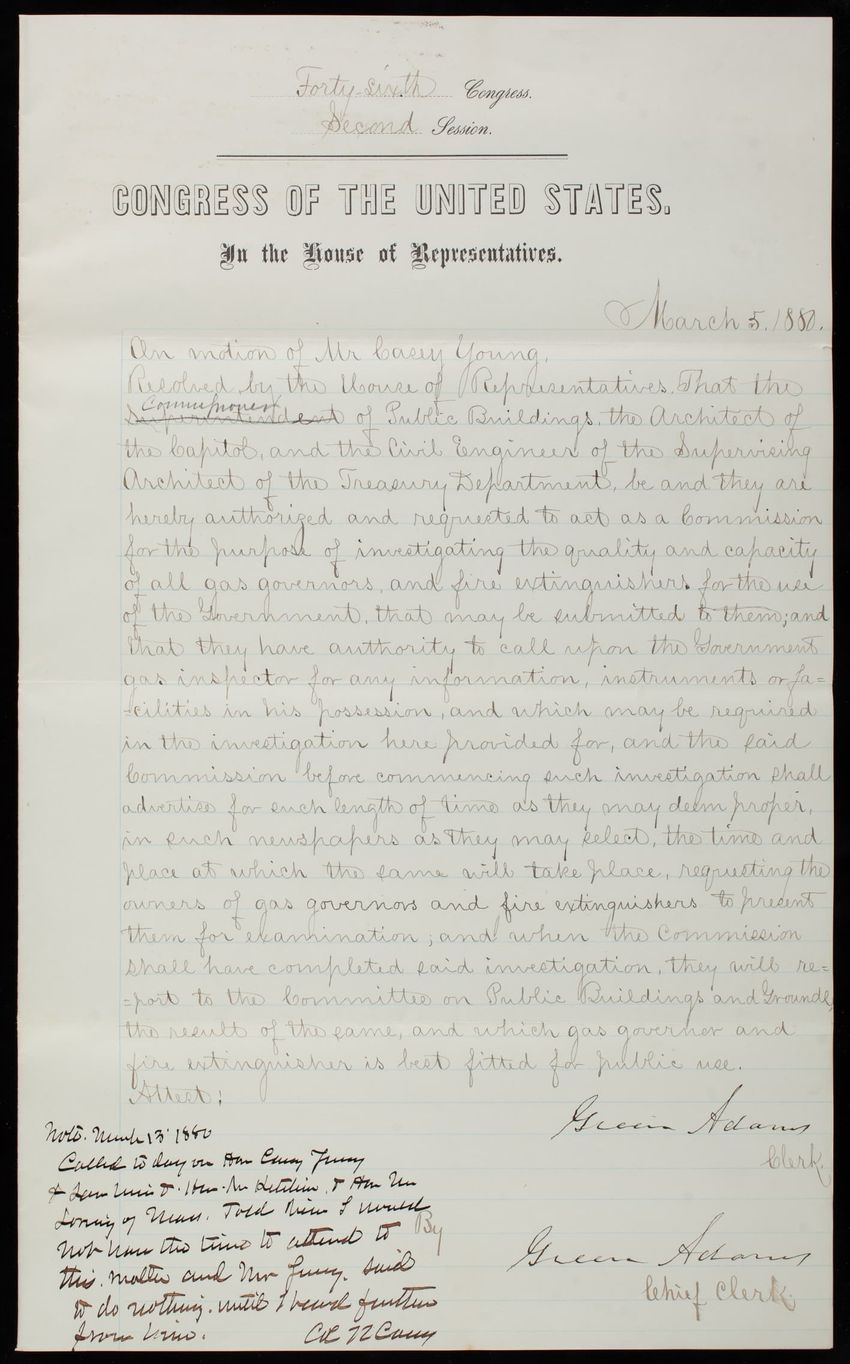 Forty-sixth Congress.
Second Session.
CONGRESS OF THE UNITED STATES.
In the House of Representatives.
March 5. 1880.
On motion of Mr Casey Young,
Resolved, by the House of Representatives. That the
Commissioner
Superintendent of Public Buildings, the Architect of
the Capitol, and the Civil Engineer of the Supervising
Architect of the Treasury Department, be and they are
hereby authorized and requested to act as a Commission
for the purpose of investigating the quality and capacity
of all gas governors, and fire extinguishers for the use
of the Government, that may be submitted to them; and
that they have authority to call upon the Government
gas inspector for any information, instruments or fa=
=cilities in his possession, and which may be required
in the investigation here provided for, and the said
Commission before commencing such investigation shall
advertise for such length of time as they may deem proper,
in such newspapers as they may select, the time and
place at which the same will take place, requesting the
owners of gas governors and fire extinguishers to present
them for examination; and when the Commission
shall have completed said investigation, they will re=
=port to the Committee on Public Buildings and Grounds,
the result of the same, and which gas governor and
fire extinguisher is best fitted for public use.
Attest:
Green Adams
Clerk.
By
Green Adams
Chief Clerk.
Note. March 13 1880
Called to day on Hon Casey Young
Hon. Mr Ketchin, & Hon Mr
Loring of Mass. Told him I would
not have the time to attend to
this matter and Mr Young said
to do nothing until I heard further
from him.
Casey